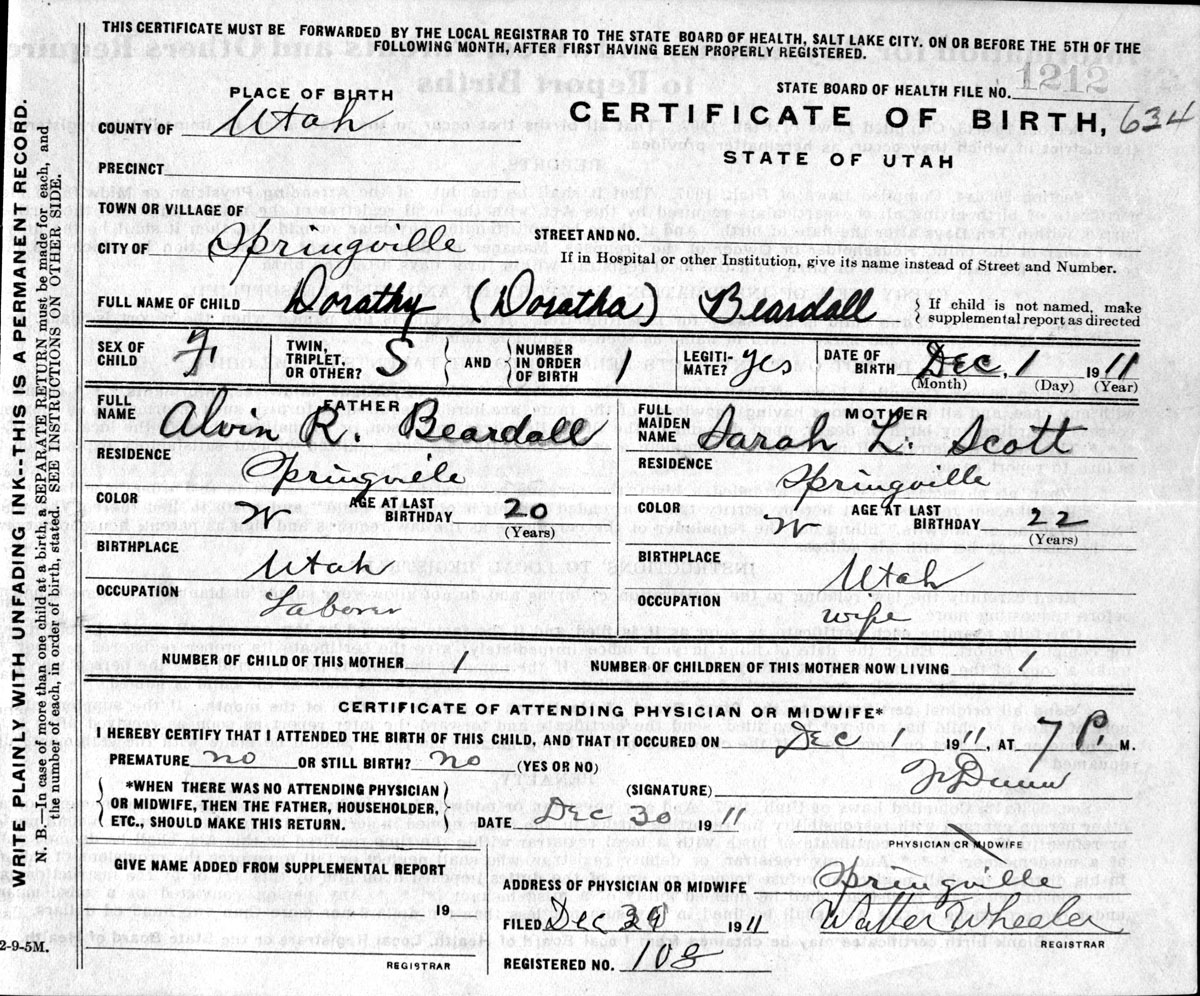 THIS CERTIFICATE MUST BE FORWARDED BY THE LOCAL REGISTRAR TO THE STATE BOARD OF HEALTH, SALT LAKE CITY, ON OR BEFORE THE 5TH OF THE
FOLLOWING MONTH, AFTER FIRST HAVING BEEN PROPERLY REGISTERED.
STATE BOARD OF HEALTH FILE NO. 1212
PLACE OF BIRTH
CERTIFICATE OF BIRTH, 634
COUNTY OF Utah
STATE OF UTAH
PRECINCT
TOWN OR VILLAGE OF
STREET AND NO.
CITY OF Springville
If in Hospital or other Institution, give its name instead of Street and Number.
FULL NAME OF CHILD Dorathy (Doratha) Beardall { If child is not named, make
supplemental report as directed
SEX OF CHILD F TWIN, TRIPLET, OR OTHER? S AND NUMBER IN ORDER OF BIRTH 1 LEGITI-MATE? yes DATE OF BIRTH Dec, 1 1911
(Month) (Day) (Year)
FULL NAME FATHER Alvin R. Beardall
FULL MAIDEN NAME MOTHER Sarah L. Scott
RESIDENCE Springvile
RESIDENCE Springville
COLOR W AGE AT LAST BIRTHDAY 20 (Years)
COLOR W AGE AT LAST BIRTHDAY 22 (Years)
BIRTHPLACE Utah
BIRTHPLACE Utah
OCCUPATION Laborer
OCCUPATION wife
NUMBER OF CHILD OF THIS MOTHER 1 NUMBER OF CHILDREN OF THIS MOTHER NOW LIVING 1
CERTIFICATE OF ATTENDING PHYSICIAN OR MIDWIFE*
I HEREBY CERTIFY THAT I ATTENDED THE BIRTH OF THIS CHILD AND THAT IT OCCURED ON Dec 1 1911, AT 7 P. M.
PREMATURE no OR STILL BIRTH? no (YES OR NO)
*WHEN THERE WAS NO ATTENDING PHYSICIAN
OR MIDWIFE, THEN THE FATHER, HOUSEHOLDER,
ETC., SHOULD MAKE THIS RETURN.
(SIGNATURE) Dunn
DATE Dec 30 1911
PHYSICIAN OR MIDWIFE
GIVEN NAME ADDED FROM SUPPLEMENTAL REPORT
19
REGISTRAR
ADDRESS OF PHYSICIAN OR MIDWIFE Springville
FILED Dec 1911 Walter Wheeler
REGISTRAR
REGISTERED NO. 108
WRITE PLAINLY WITH UNFADING INK--THIS IS A PERMANENT RECORD.
N. B.--In case of more than one child at a birth, SEPARATE RETURN must be made for each, and
the number of each, in order of birth, stated. SEE INSTRUCTIONS ON OTHER SIDE.
2-9-5M.